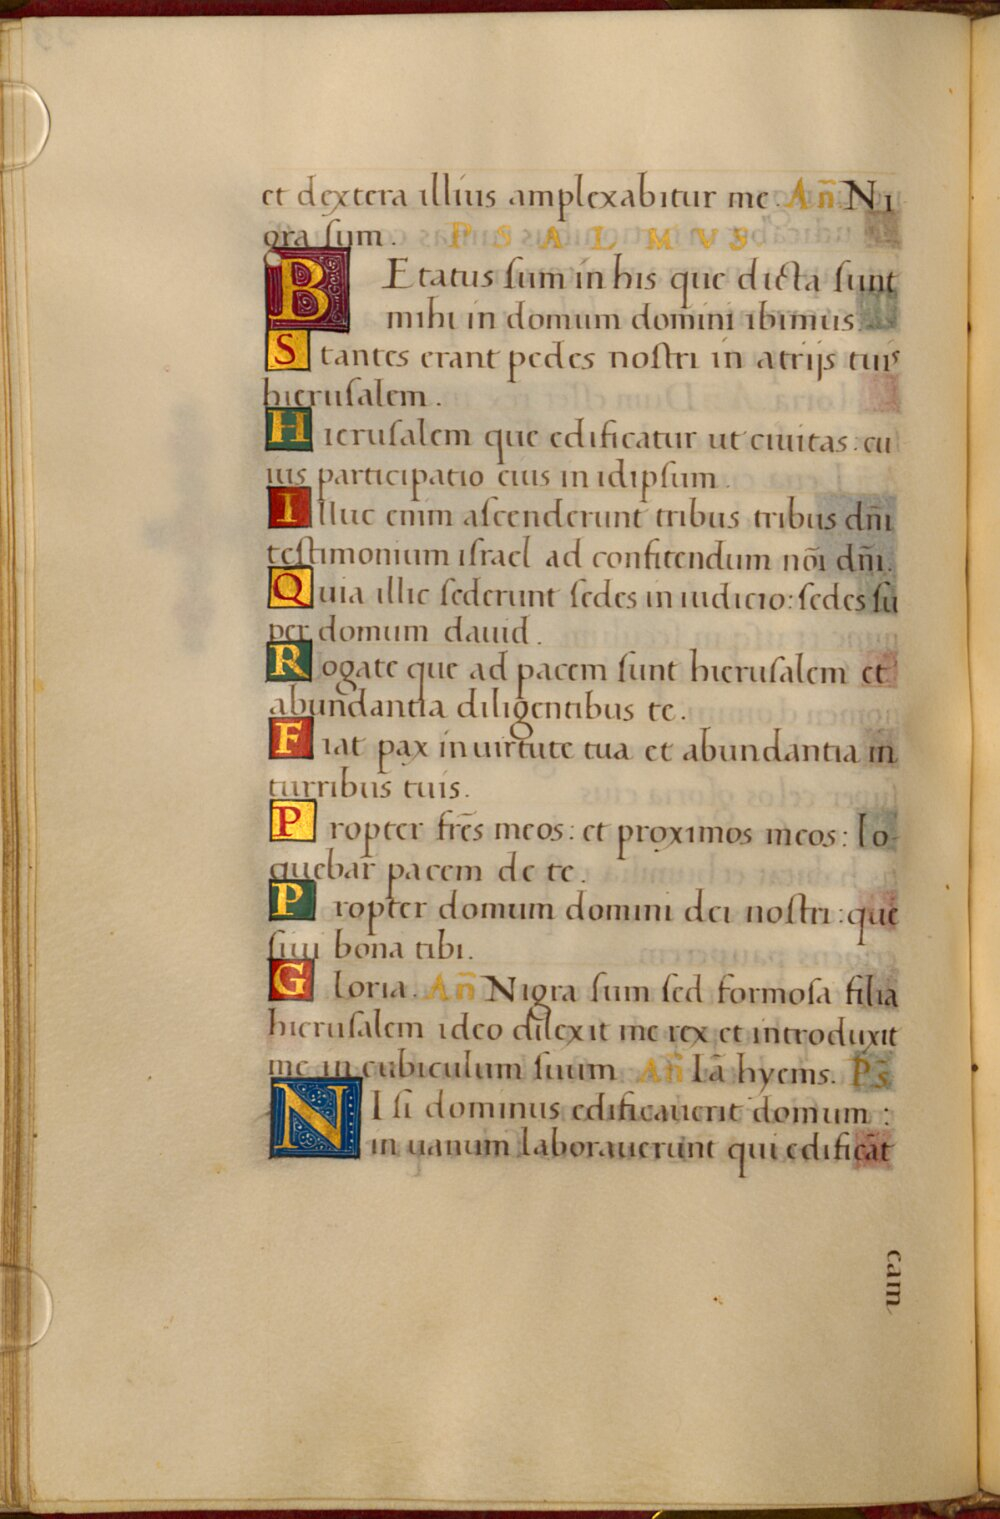 et dextera illius amplexabitur me. Añ Ni
gra ſum. PSALMVS
BEtatus ſum in his que dicta ſunt
mihi in domum domini ibimus.
Stantes erant pedes noſtri in atrijs tuis
hieruſalem.
Hieruſalem que edificatur ut ciuitas: cu
ius participatio eius in idipſum.
Illuc enim aſcenderunt tribus tribus dñi
teſtimonium iſrael ad confitendum nōi dñi.
Quia illic ſederunt ſedes in iudicio: ſedes ſu
per domum dauid.
Rogate que ad pacem ſunt hieruſalem et
abundantia diligentibus te.
Fiat pax in uirtute tua et abundantia in
turribus tuis.
Propter fr̄es meos: et proximos meos: lo-
quebar pacem de te.
Propter domum domini dei noſtri: que
ſiui bona tibi.
Gloria. Añ Nigra ſum ſed formoſa filia
hieruſalem ideo dilexit me rex et introduxit
me in cubiculum ſuum Añ Iā hyems. Ps̄
NIſi dominus edificauerit domum:
in uanum laborauerunt qui edificāt
cam